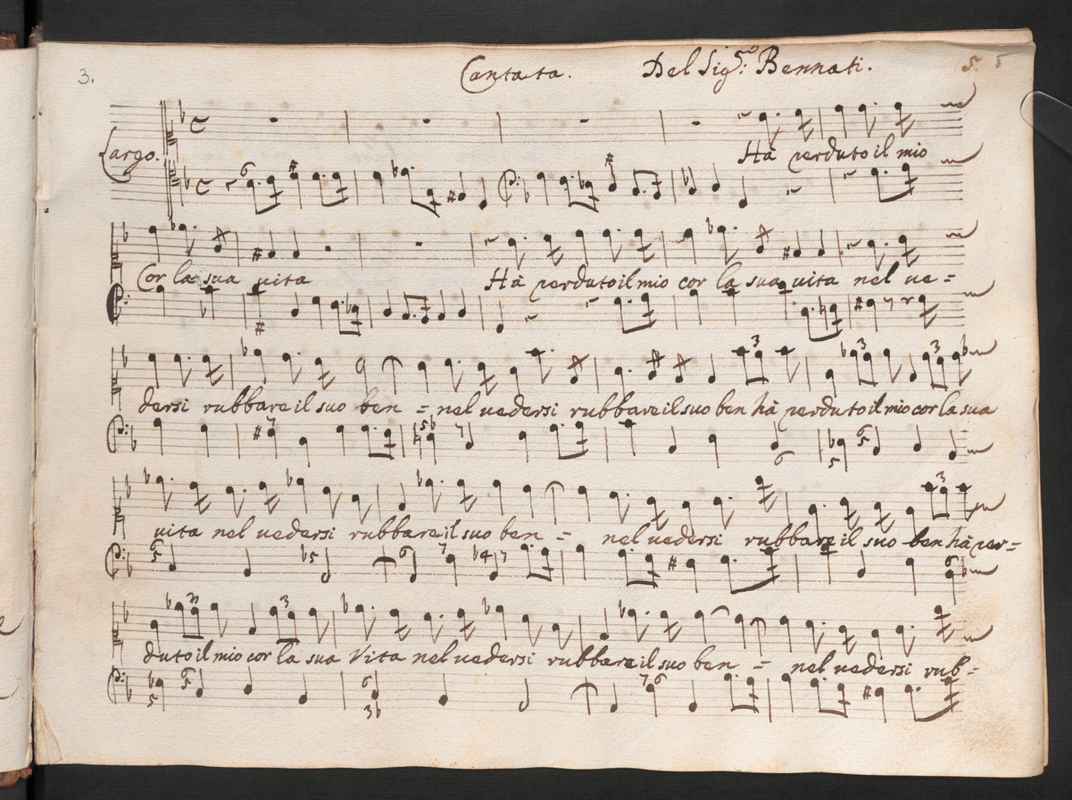 3. Cantata. Del Sig.r Bennati. 5. 5
Largo.
Hà perduto il mio
Cor la sua vita Hà perduto il mio cor la sua vita nel ve=
dersi rubbare il suo ben = nel vedersi rubbare il suo ben hà perduto il mio cor la sua
vita nel vedersi rubbare il suo ben = nel vedersi rubbare il suo ben hà per=
duto il mio cor la sua Vita nel vedersi rubbare il suo ben = nel vedersi rub=